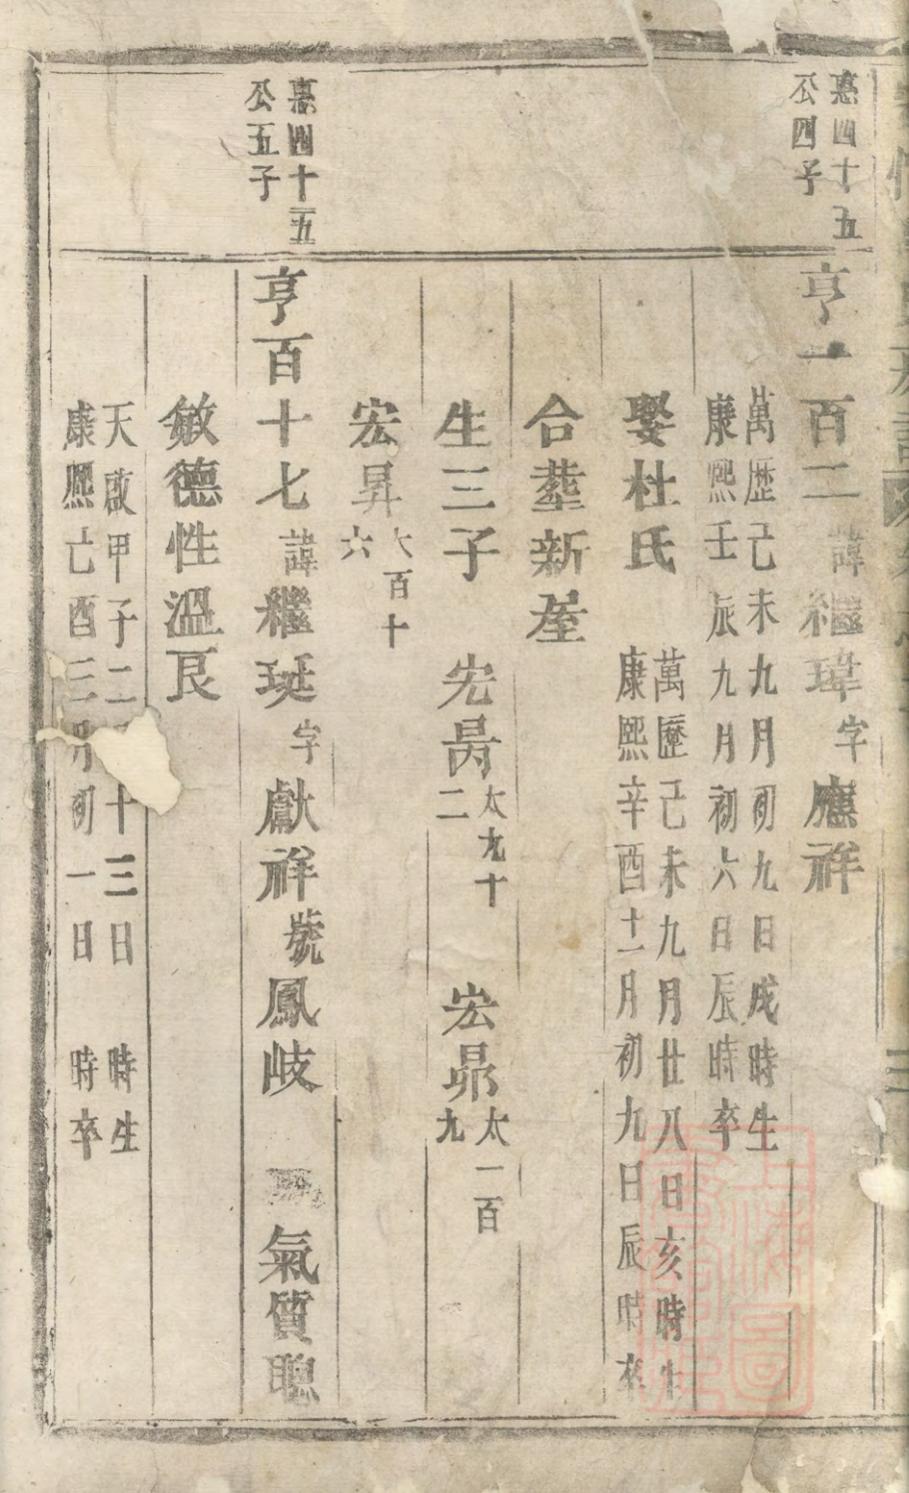 惪四十五
公四子
亨一百二諱繼瑋字應祥
萬歷己未九月初九日戌時生
康熙壬辰九月初六日辰時卒
娶杜氏
萬歷己未九月廿八日亥時生
康熙辛酉十一月初九日辰時卒
合塟新屋
生三子 宏昺太九十二 宏昴太一百九
宏昇太百十六
惪四十五
公五子
亨百十七諱繼珽字獻祥號鳳岐 氣質聰
敏德性溫良
天啟甲子二十三日 時生
康熙亡酉三月初一日 時卒